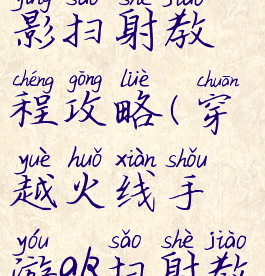 yǐng sǎo shè jiào
影扫射教
chéng gōng lüè chuān
程攻略(穿
yuè huǒ xiàn shǒu
越火线手
yóu sǎo shè jiào
游ak扫射教